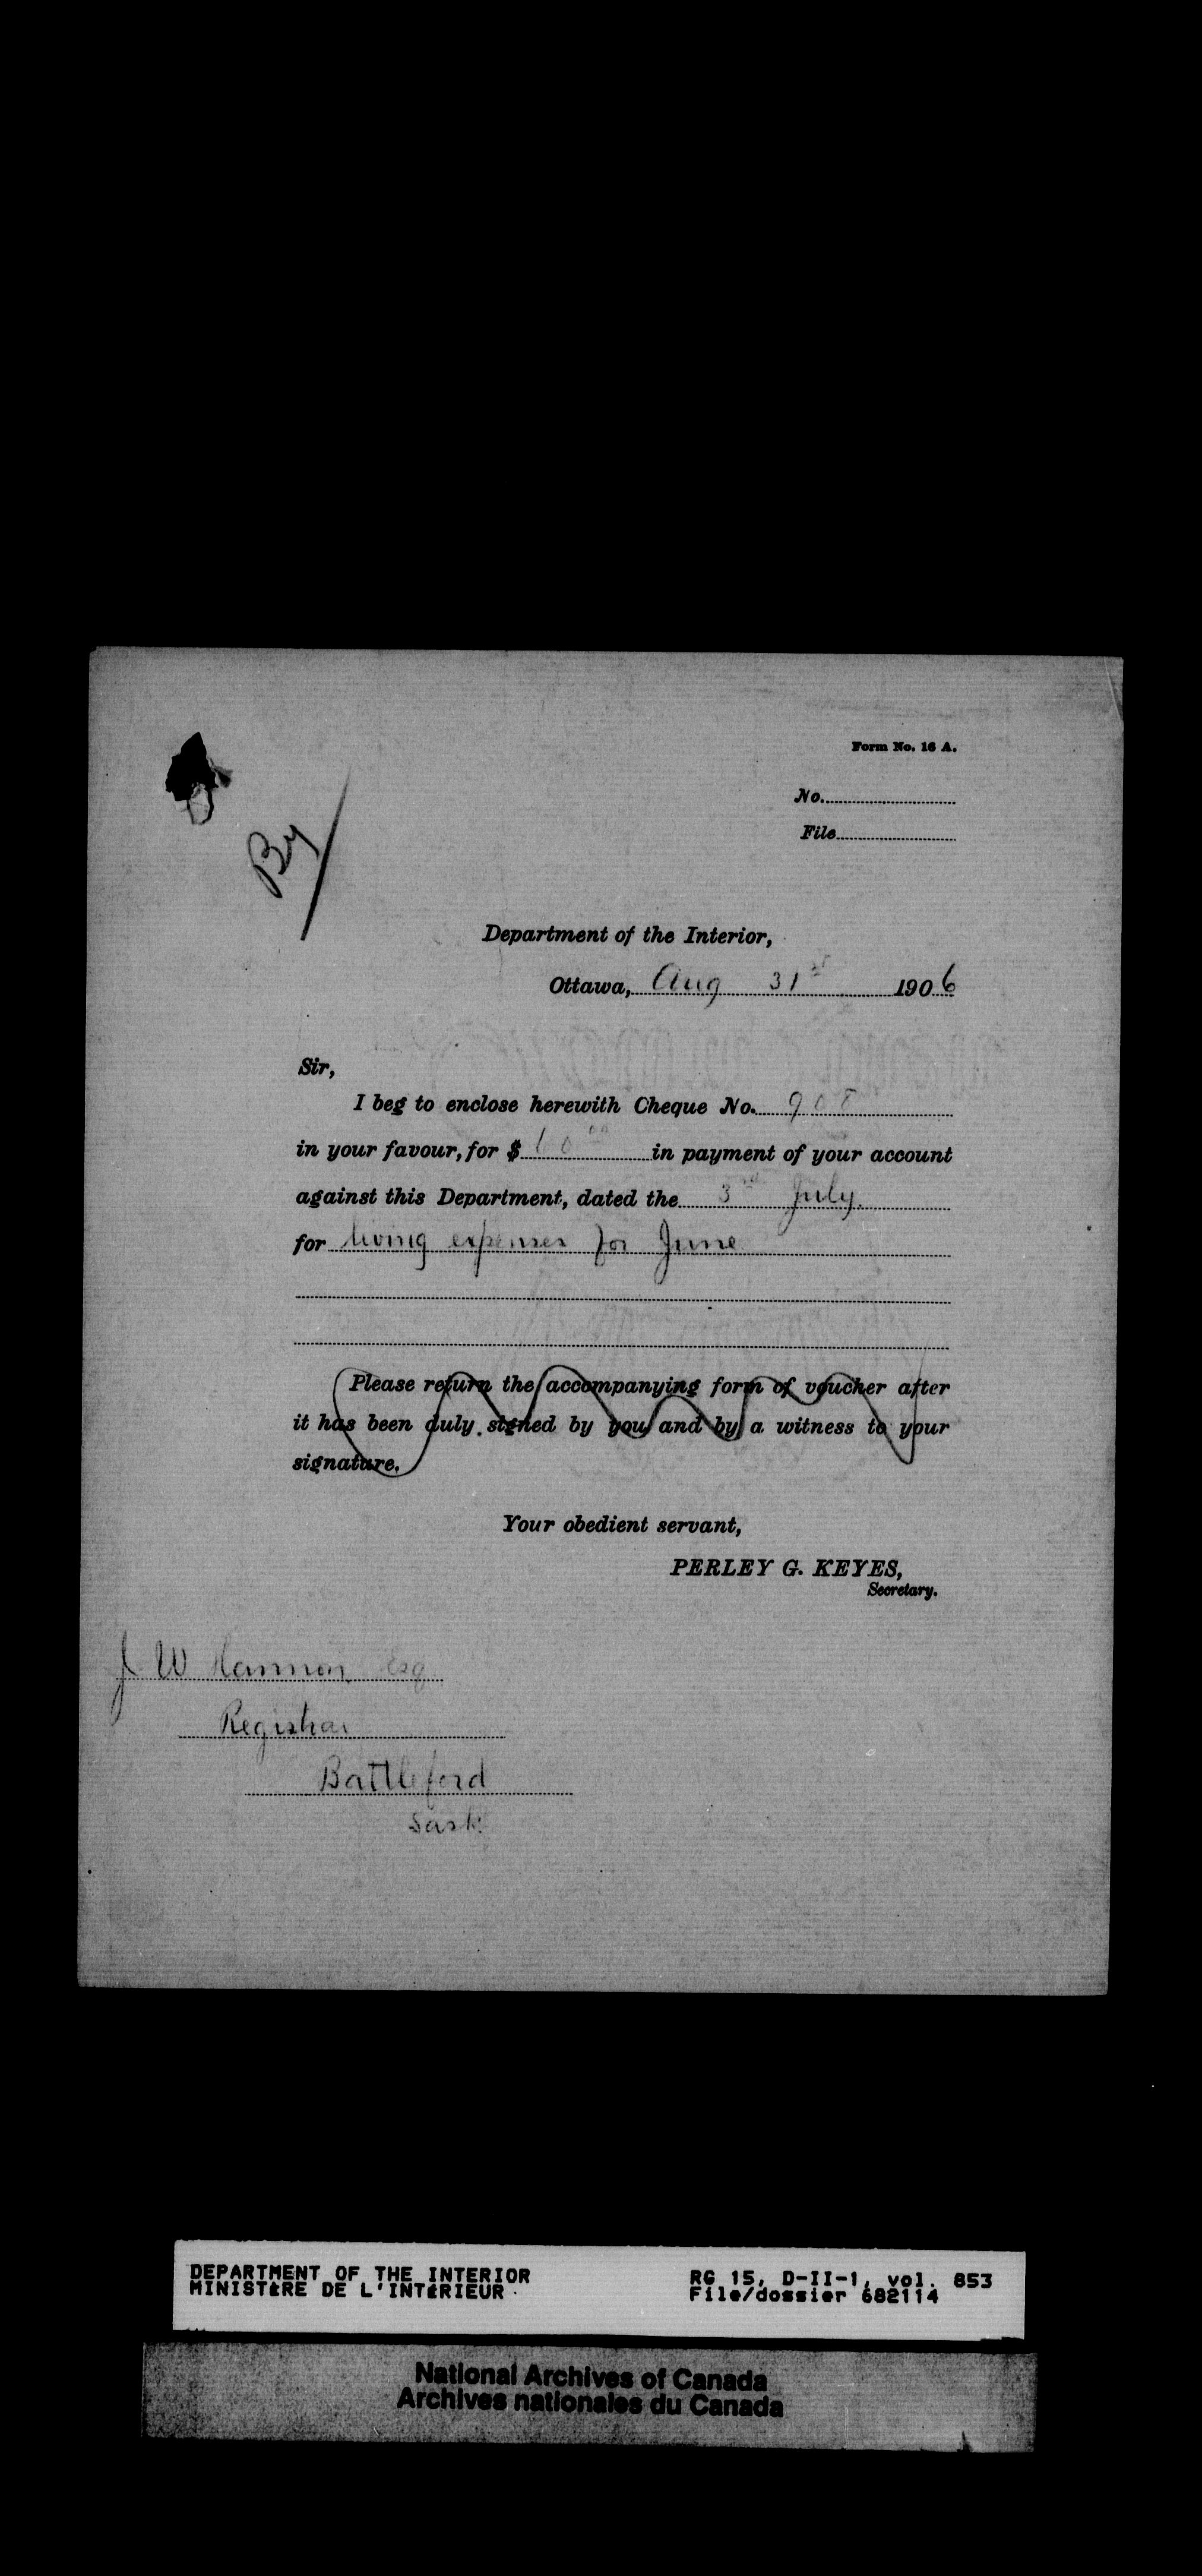 Form No. 16 A.
No.
File
By
Department of the Interior,
Ottawa, Aug 31st 1906
Sir,
I beg to enclose herewith Cheque No. 908
in your favour, for $ 10 00 in payment of your account
against this Department, dated the 3rd July.
for living expenses for June
Please return the accompanying form of voucher after
it has been duly signed by you and by a witness to your
signature.
Your obedient servant,
PERLEY G. KEYES,
Secretary.
J W Hannon Esq
Registrar
Battleford
Sask.
DEPARTMENT OF THE INTERIOR
MINISTÈRE DE L'INTÉRIEUR
RG 15, D-II-1, vol. 853
File/dossier 682114
National Archives of Canada
Archives nationales du Canada